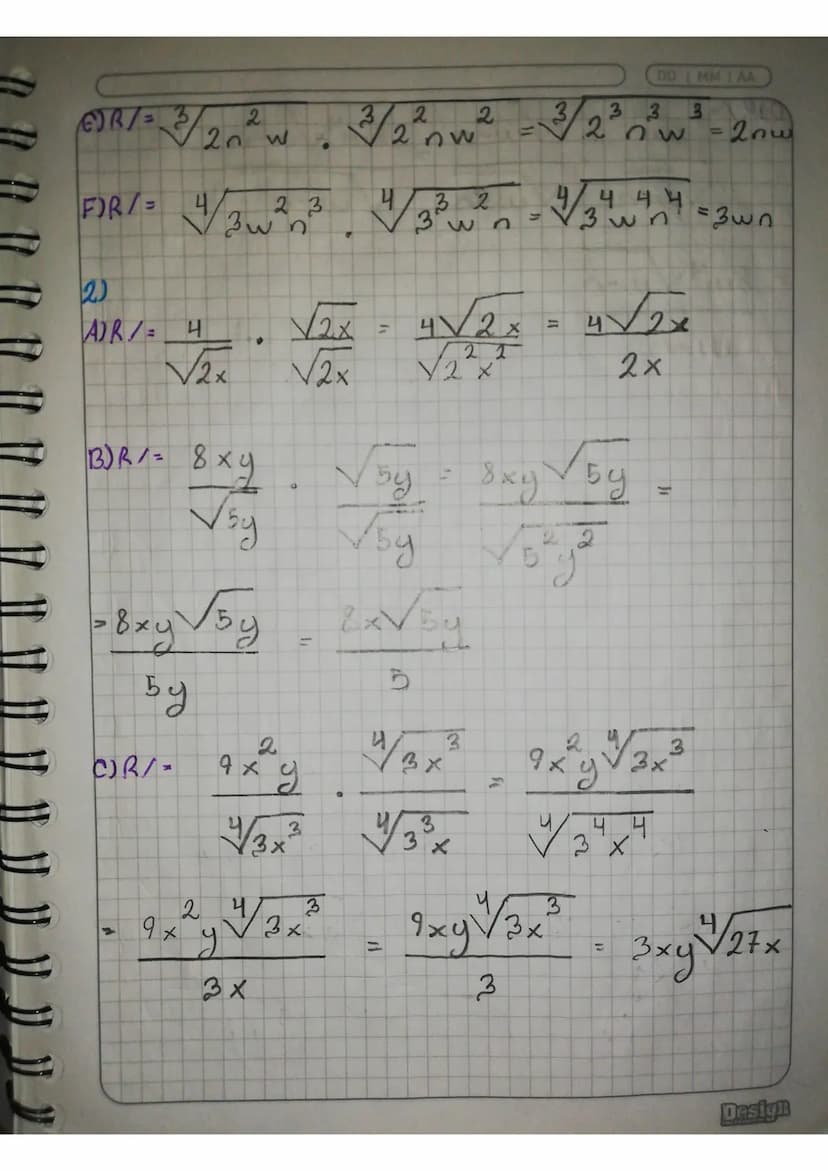 DD | MM | AA
E) R/= ∛(2n²w) · ∛(2²nw²) = ∛(2³n³w³) = 2nw
F) R/= ∜(3w²n³) · ∜(3³w²n) = ∜(3⁴w⁴n⁴) = 3wn
2)
A) R/= 4/√(2x) · √(2x)/√(2x) = 4√(2x)/√(2²x²) = 4√(2x)/2x
B) R/= 8xy/√(5y) · √(5y)/√(5y) = 8xy√(5y)/√(5²y²) =
= 8xy√(5y)/5y = 8x√(5y)/5
C) R/= 9x²y/∜(3x³) · ∜(3x³)/∜(3³x) = 9x²y∜(3x³)/∜(3⁴x⁴)
= 9x²y∜(3x³)/3x = 9xy∜(3x³)/3 = 3xy∜(27x)
Design